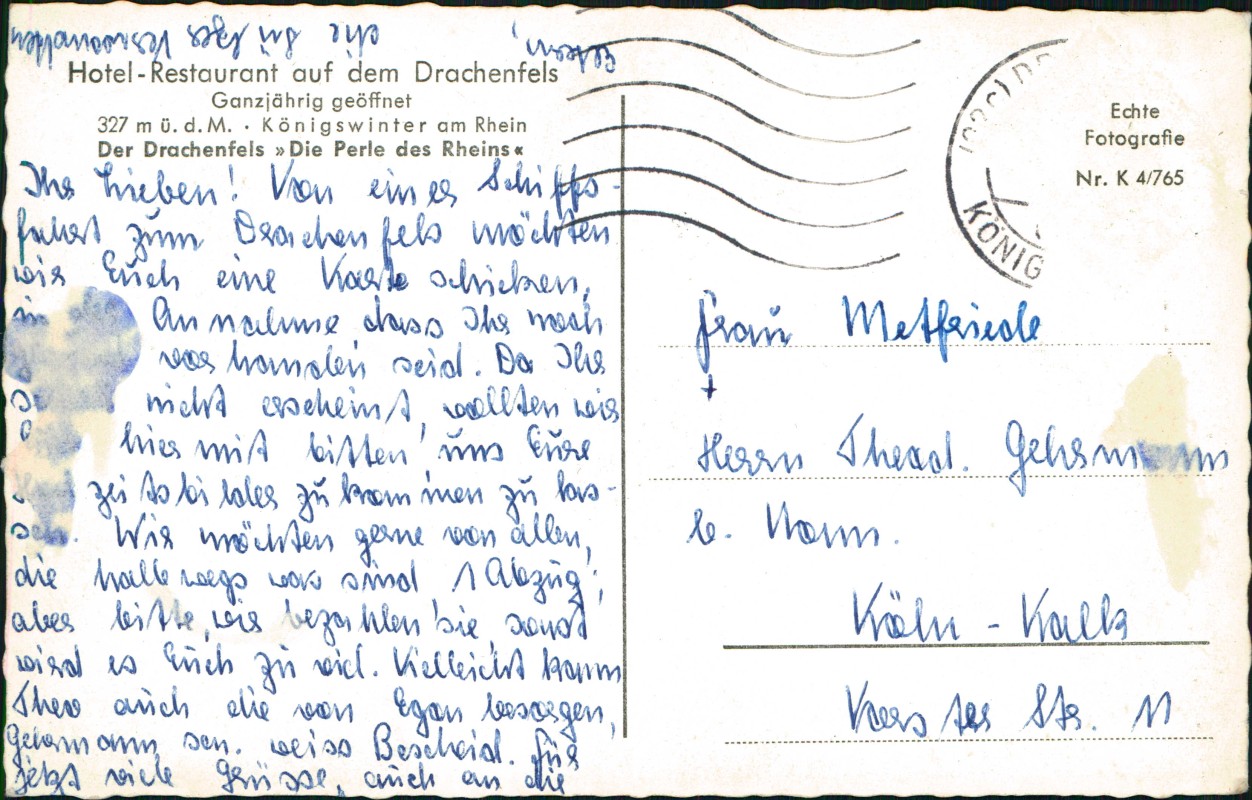 Hotel-Restaurant auf dem Drachenfels
Ganzjährig geöffnet
327 m ü. d. M. · Königswinter am Rhein
Der Drachenfels »Die Perle des Rheins«
Ihr Lieben! Von einer Schiffs-
fahrt zum Drachenfels möchten
wir Euch eine Karte schicken,
in Annahme dass Ihr noch
vorhanden seid. Da Ihr
nicht erscheint, wollten wir
hiermit bitten, uns Eure
zeitsbilder zukommen zu las-
sen. Wir möchten gerne von allen,
die halbwegs was sind 1 Abzug,
aber bitte, wir bezahlen sie, sonst
wird es Euch zu viel. Vielleicht kann
Theo auch die von Egon besorgen,
Gehrmann sen. weiss Bescheid. Für
jetzt viele Grüsse, auch an die
Eltern,
Echte
Fotografie
Nr. K 4/765
KÖNIG
Frau Metfriede
+
Herrn Theod. Gehrmann
b. Nonn.
Köln - Kalk
Str. 11